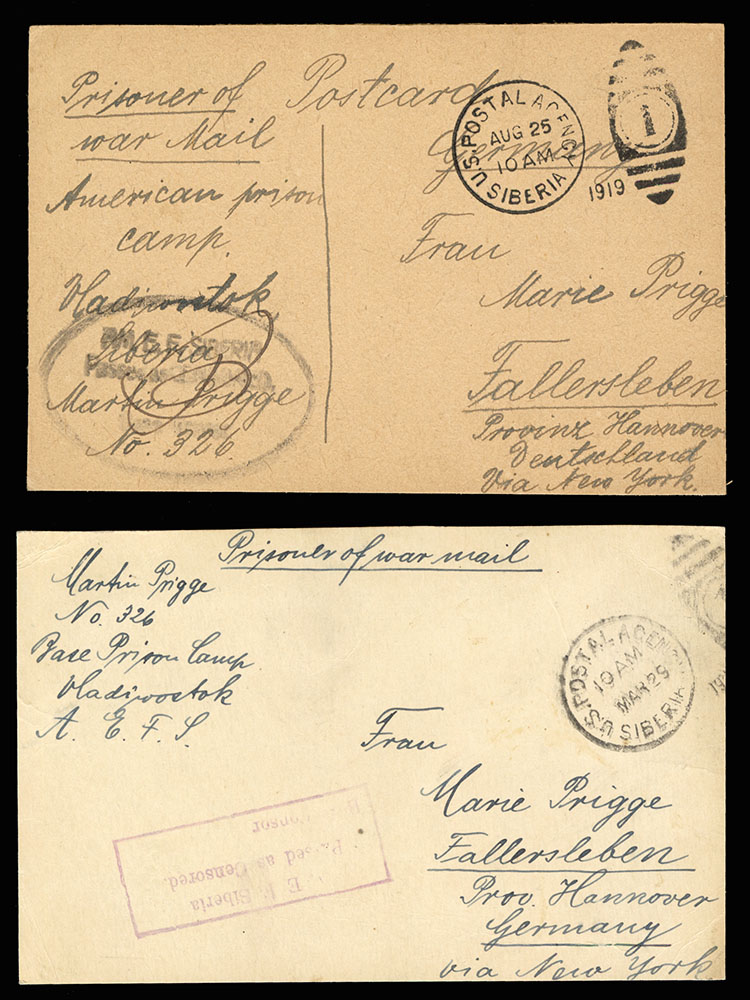 Prisoner of Postcard
war Mail
Germany
U.S. POSTAL AGENCY
AUG 25
10 AM
SIBERIA
1919
1
American prison
camp.
Vladiwostok
Siberia
Martin Prigge
No. 326
SIBERIA
Frau
Marie Prigge
Fallersleben
Provinz Hannover
Deutschland
Via New York.
Prisoner of war mail
Martin Prigge
No. 326
Base Prison Camp
Vladiwostok
A. E. F. S.
U.S. POSTAL AGENCY
10 AM
MAR 29
SIBERIA
Frau
Marie Prigge
Fallersleben
Prov. Hannover
Germany
via New York
E. F. Siberia
Passed as Censored.
Censor